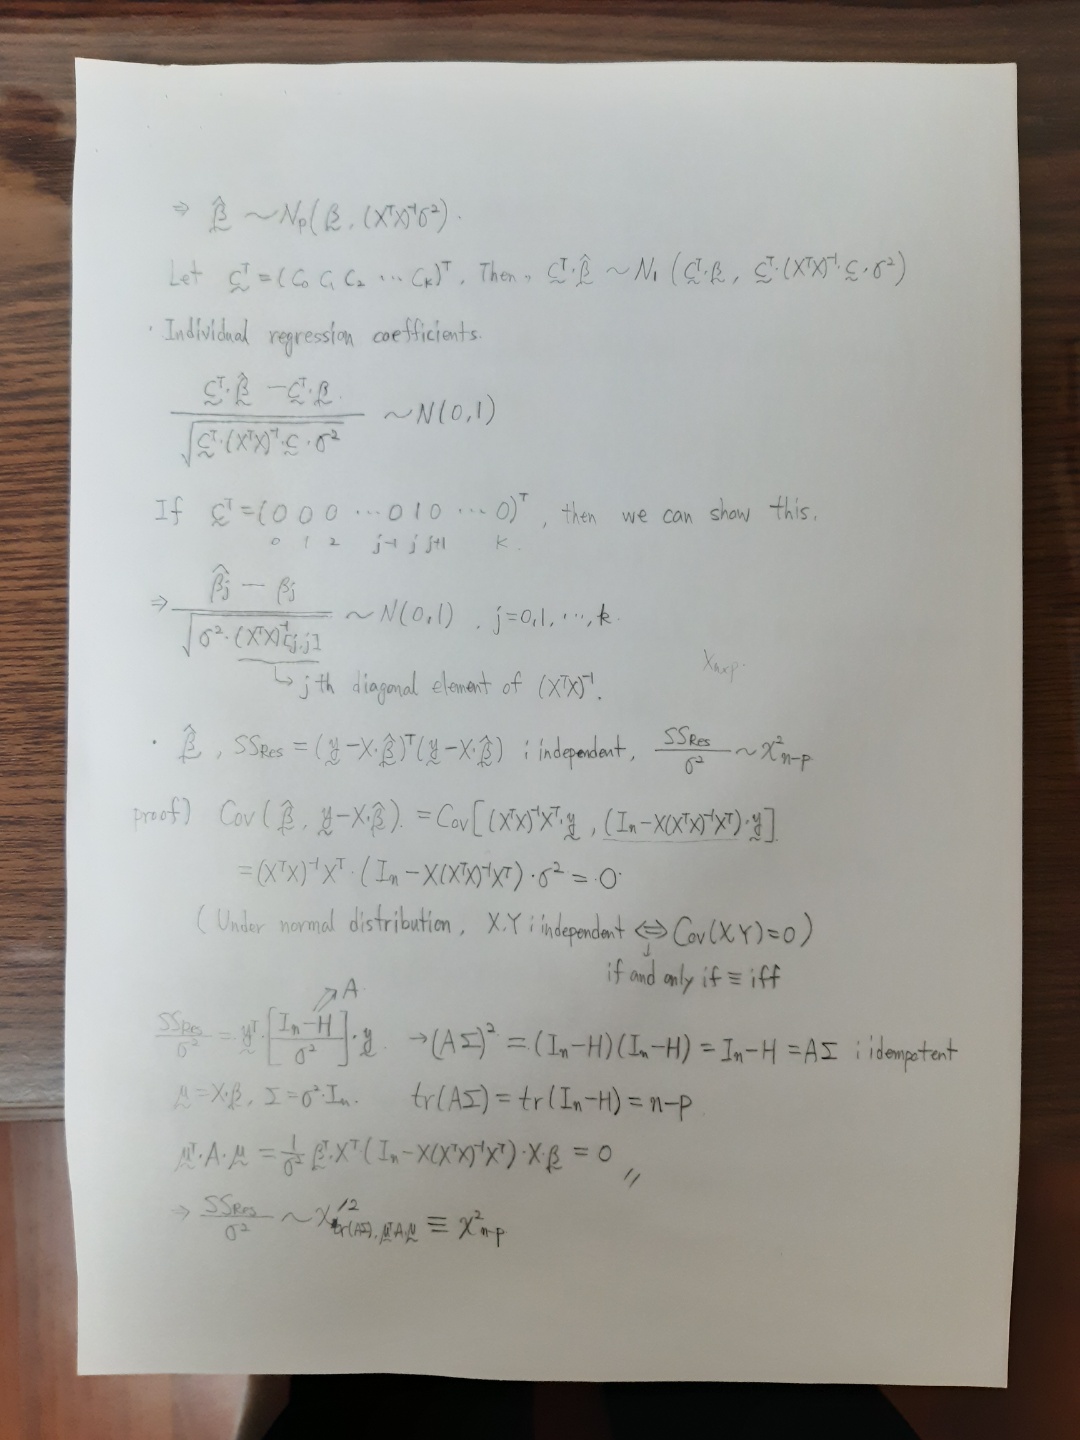 ⇒ β̂ ~ N_p(β, (XᵀX)⁻¹σ²).
Let cᵀ = (C₀ C₁ C₂ ⋯ C_k)ᵀ, Then, cᵀ·β̂ ~ N₁(cᵀ·β, cᵀ·(XᵀX)⁻¹·c·σ²)
· Individual regression coefficients.
(cᵀ·β̂ − cᵀ·β) / √(cᵀ·(XᵀX)⁻¹·c·σ²) ~ N(0,1)
If cᵀ = (0 0 0 ⋯ 0 1 0 ⋯ 0)ᵀ, then we can show this.
0 1 2 j-1 j j+1 k.
⇒ (β̂j − βj) / √(σ²·(XᵀX)⁻¹[j,j]) ~ N(0,1), j=0,1,⋯,k.
X_{n×p}.
↳ j th diagonal element of (XᵀX)⁻¹.
· β̂, SS_Res = (y−X·β̂)ᵀ(y−X·β̂) ; independent, SS_Res/σ² ~ χ²_{n-p}
proof) Cov(β̂, y−X·β̂). = Cov[(XᵀX)⁻¹Xᵀ·y, (In−X(XᵀX)⁻¹Xᵀ)·y].
= (XᵀX)⁻¹Xᵀ·(In−X(XᵀX)⁻¹Xᵀ)·σ² = 0
(Under normal distribution, X,Y ; independent ⇔ Cov(X,Y)=0)
↓
if and only if ≡ iff
↗A
SS_Res/σ² = yᵀ·[(In−H)/σ²]·y → (AΣ)² = (In−H)(In−H) = In−H = AΣ ; idempotent
μ=X·β, Σ=σ²·In. tr(AΣ) = tr(In−H) = n−p
μᵀ·A·μ = 1/σ² βᵀ·Xᵀ(In−X(XᵀX)⁻¹Xᵀ)·X·β = 0 〃
⇒ SS_Res/σ² ~ χ'²_{tr(AΣ), μᵀAμ} ≡ χ²_{n-p}